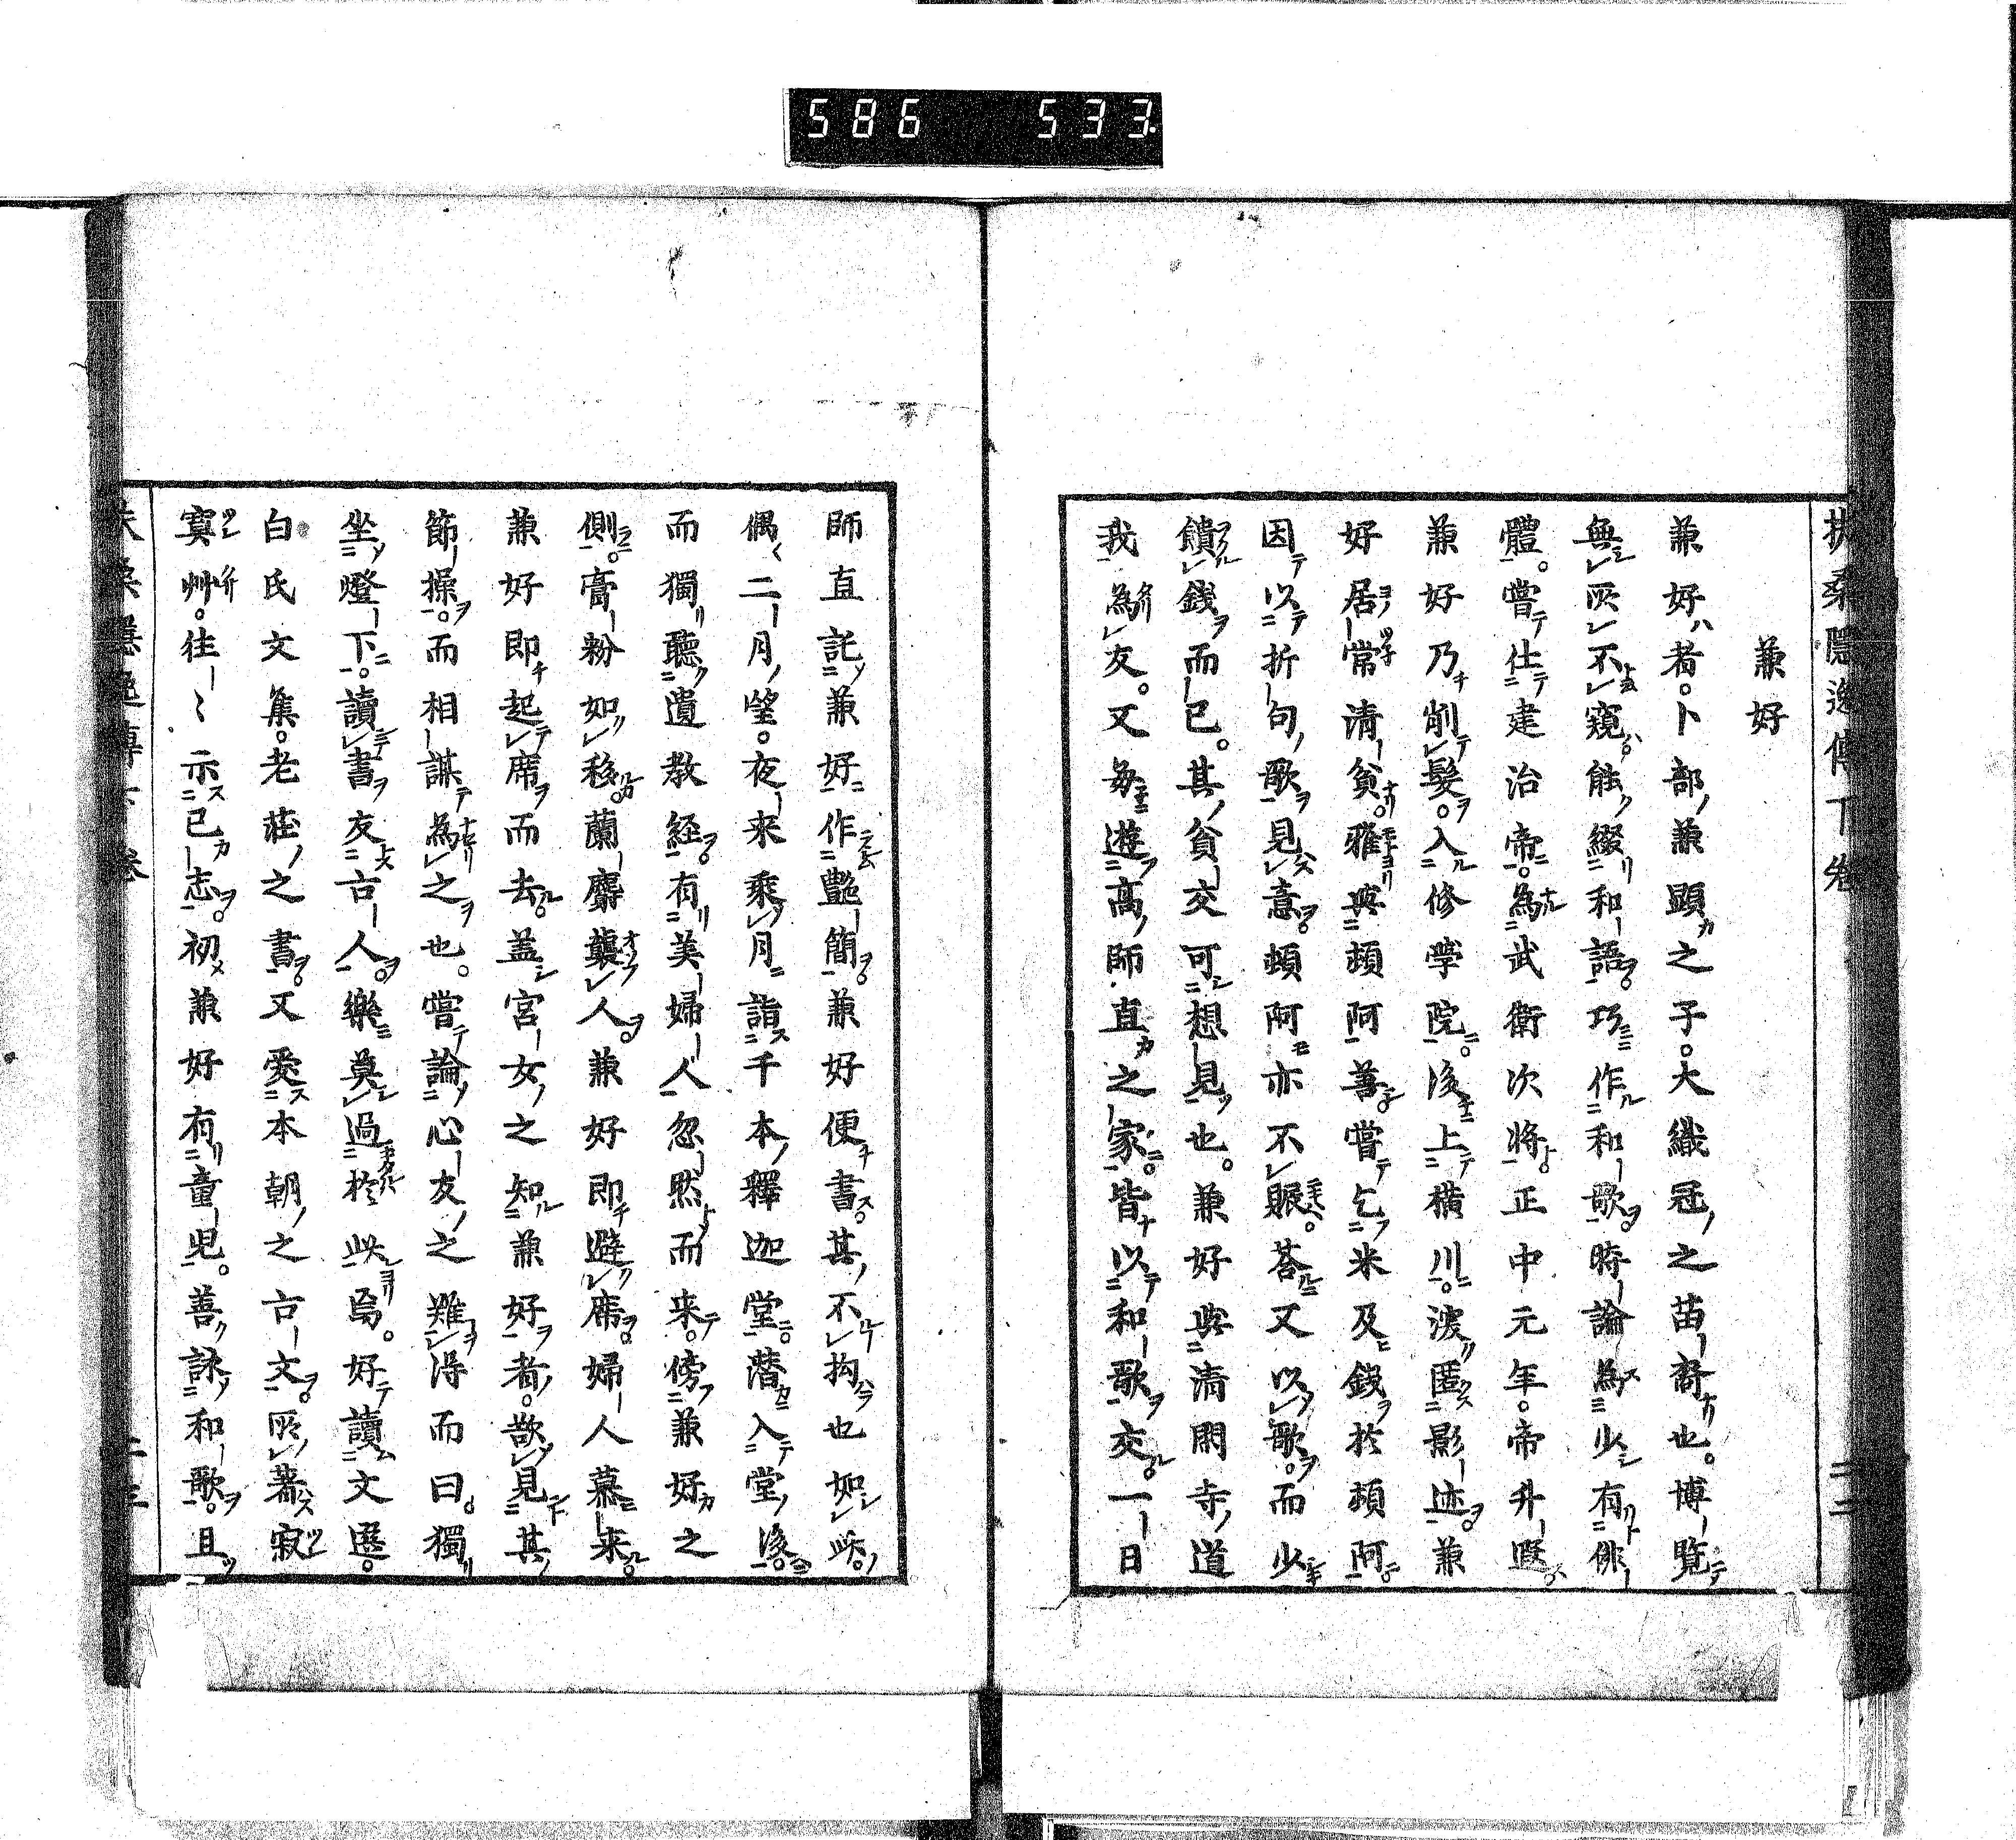 586 533
扶桑隱逸傳下卷 二二
兼好
兼好者。卜部兼顯之子。大織冠之苗裔也。博覽
無所不窺。能綴和語。巧作和歌。時論為少有俳
體。嘗仕建治帝。為武衛次將。正中元年。帝升遐。
兼好乃削髮。入修學院。後上橫川。浚匿影迹。兼
好居常清貧。雅與頓阿善。嘗乞米及錢於頓阿。
因以折句歌見意。頓阿亦不賑。答又以歌。而少
饋錢而已。其貧交可想見也。兼好與清閑寺道
我為友。又每遊高師直之家。皆以和歌交。一日
師直託兼好作艷簡。兼好便書。其不拘也如此。
偶二月望。夜来乘月詣千本釋迦堂。潛入堂後。
而獨聽遺教経。有美婦人忽然而来。傍兼好之
側。膏粉如移。蘭麝襲人。兼好即避席。婦人慕来。
兼好即起席而去。盖宮女之知兼好者。欲見其
節操。而相謀為之也。嘗論心友之難得而曰。獨
坐燈下。讀書友古人。樂莫過於此焉。好讀文選。
白氏文集。老莊之書。又愛本朝之古文。所著寂
寞艸。往〻示己志。初兼好有童兒。善詠和歌。且
扶桑隱逸傳下卷 二三